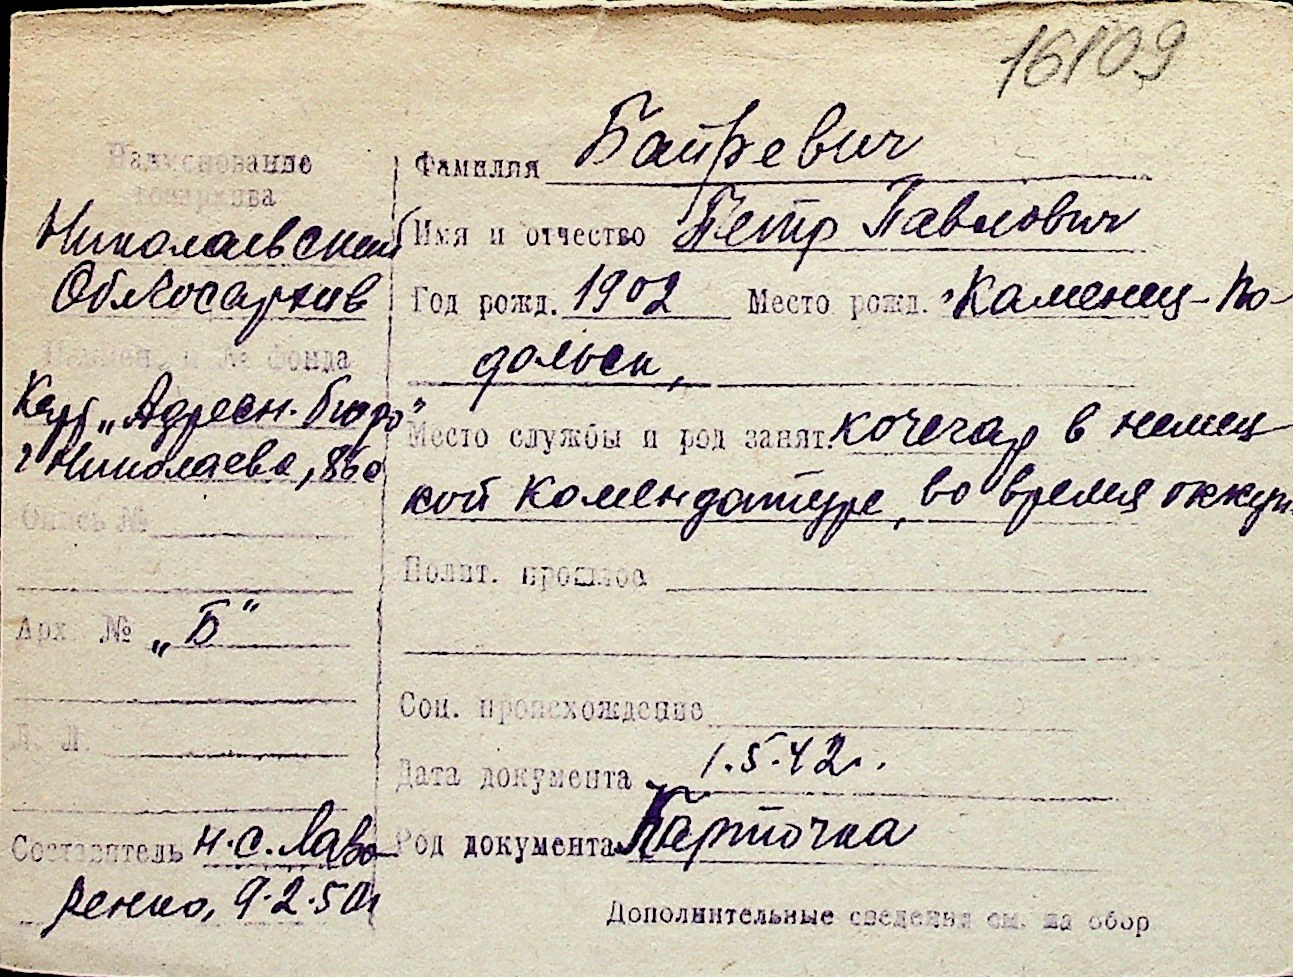 16109
Наименование
госархива
Николаевский
Облгосархив
Наимен. и № фонда
Карт „Адресн. бюро"
г Николаева, 860
Опись №
Арх. № „Б"
Л. Л.
Составитель Н.С. Лавр
енко, 9.2.50г
Фамилия
Имя и отчество Петр Павлович
Год рожд. 1902 Место рожд. Каменец-По-
дольск,
Место службы и род занят. кочегар в немец
кой комендатуре, во время оккуп.
Полит. прошлое
Соц. происхождение
Дата документа 1.5.42г.
Род документа Карточка
Дополнительные сведения см. на обор